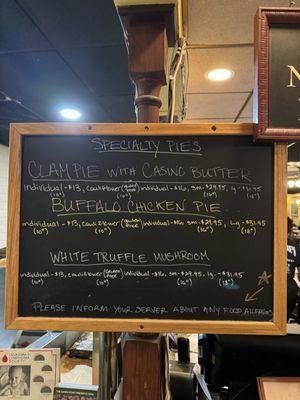 SPECIALTY PIES
CLAM PIE WITH CASINO BUTTER
individual - $13, cauliflower (gluten free) individual - $16, sm - $24.95, lg - $31.95
(10") (10") (16") (18")
BUFFALO CHICKEN PIE
individual - $13, cauliflower (gluten free) individual - $16 sm - $24.95, Lg - $31.95
(10") (10") (16") (18")
WHITE TRUFFLE MUSHROOM
individual - $13, cauliflower (gluten free) individual - $16, sm - $24.95, lg - $31.95
(10") (10") (16") (18")
PLEASE INFORM YOUR SERVER ABOUT ANY FOOD ALLERGIES
N
LEUKEMIA &
LYMPHOMA
SOCIETY